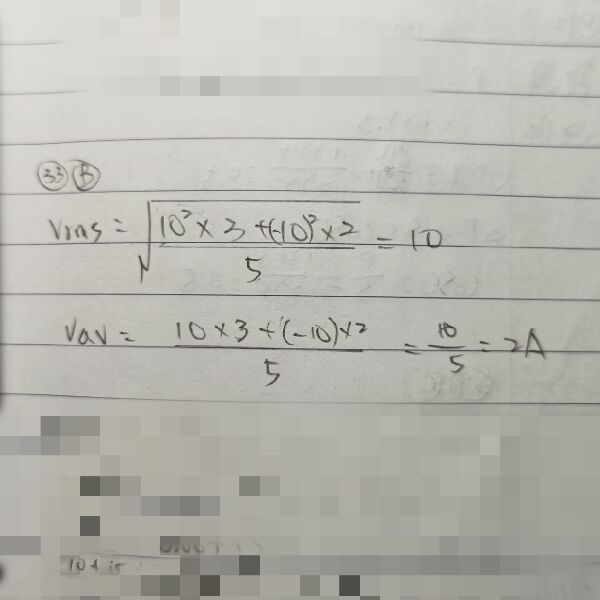 33 B
Vrms = √(10² × 3 + (-10)² × 2 / 5) = 10
Vav = 10 × 3 + (-10) × 2 / 5 = 10 / 5 = 2A